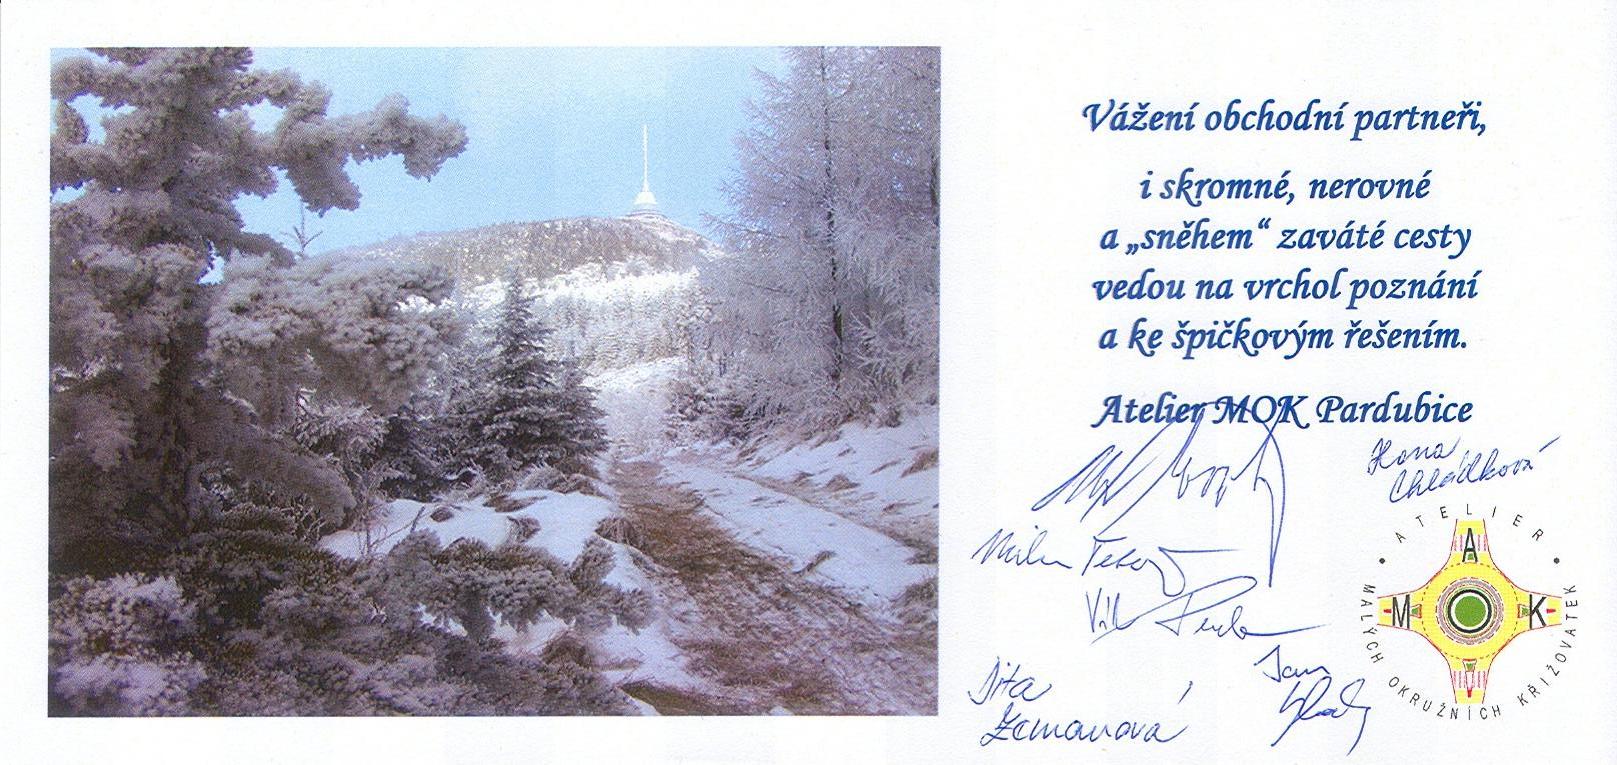 Vážení obchodní partneři,
i skromné, nerovné
a „sněhem“ zaváté cesty
vedou na vrchol poznání
a ke špičkovým řešením.
Atelier MOK Pardubice
Hana
Chládková
Milan
Jan
Dita
Zemanová
ATELIER
MALÝCH OKRUŽNÍCH KŘIŽOVATEK
A
M K